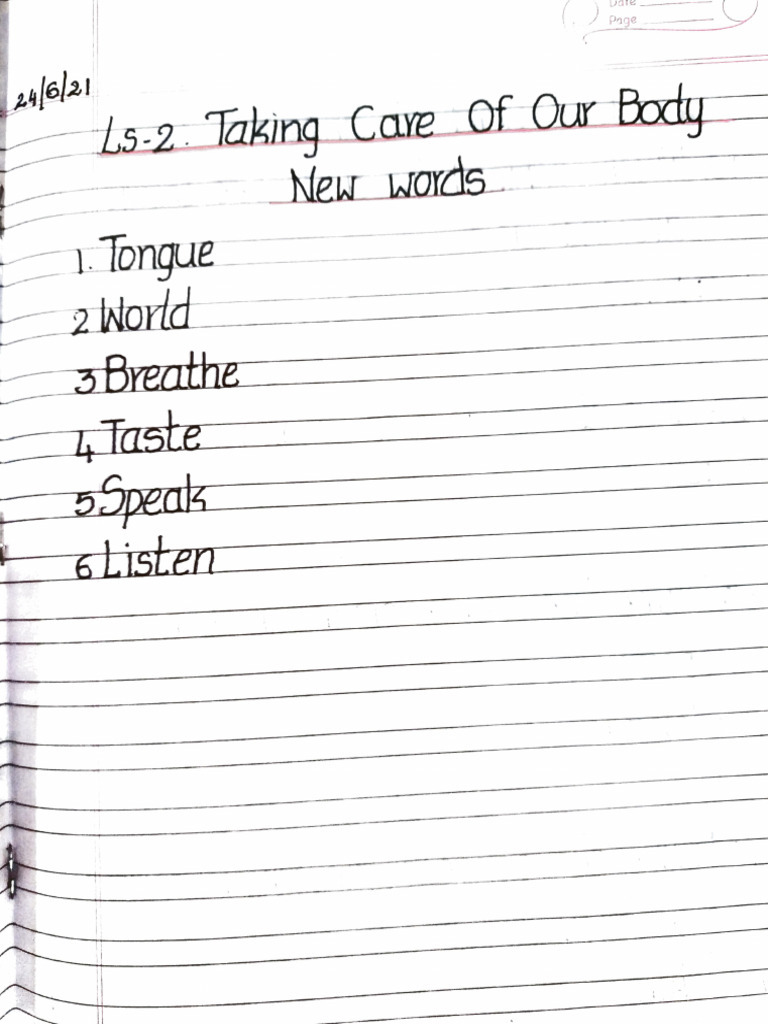 Date
Page
24/6/21
Ls-2. Taking Care Of Our Body
New words
1. Tongue
2 World
3 Breathe
4 Taste
5 Speak
6 Listen